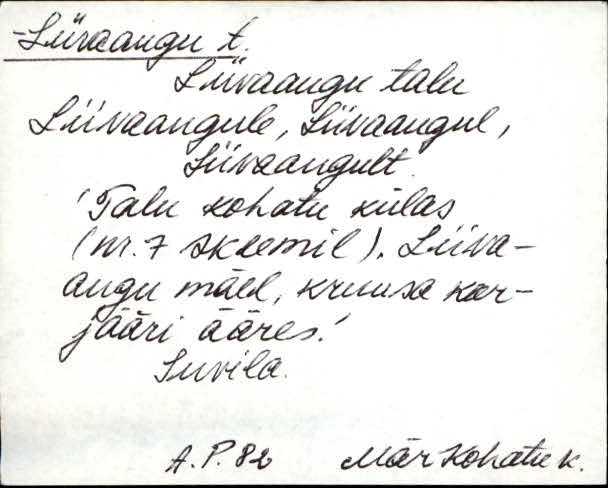 -Liivaangu t.
Liivaangu talu
Liivaangule, Liivaangul,
Liivaangult.
'Talu Kohatu külas
(nr. 7 skeemil). Liiva-
angu mäel, kruusa kar-
jääri ääres.'
Suvila.
A.P. 82 Mär Kohatu k.